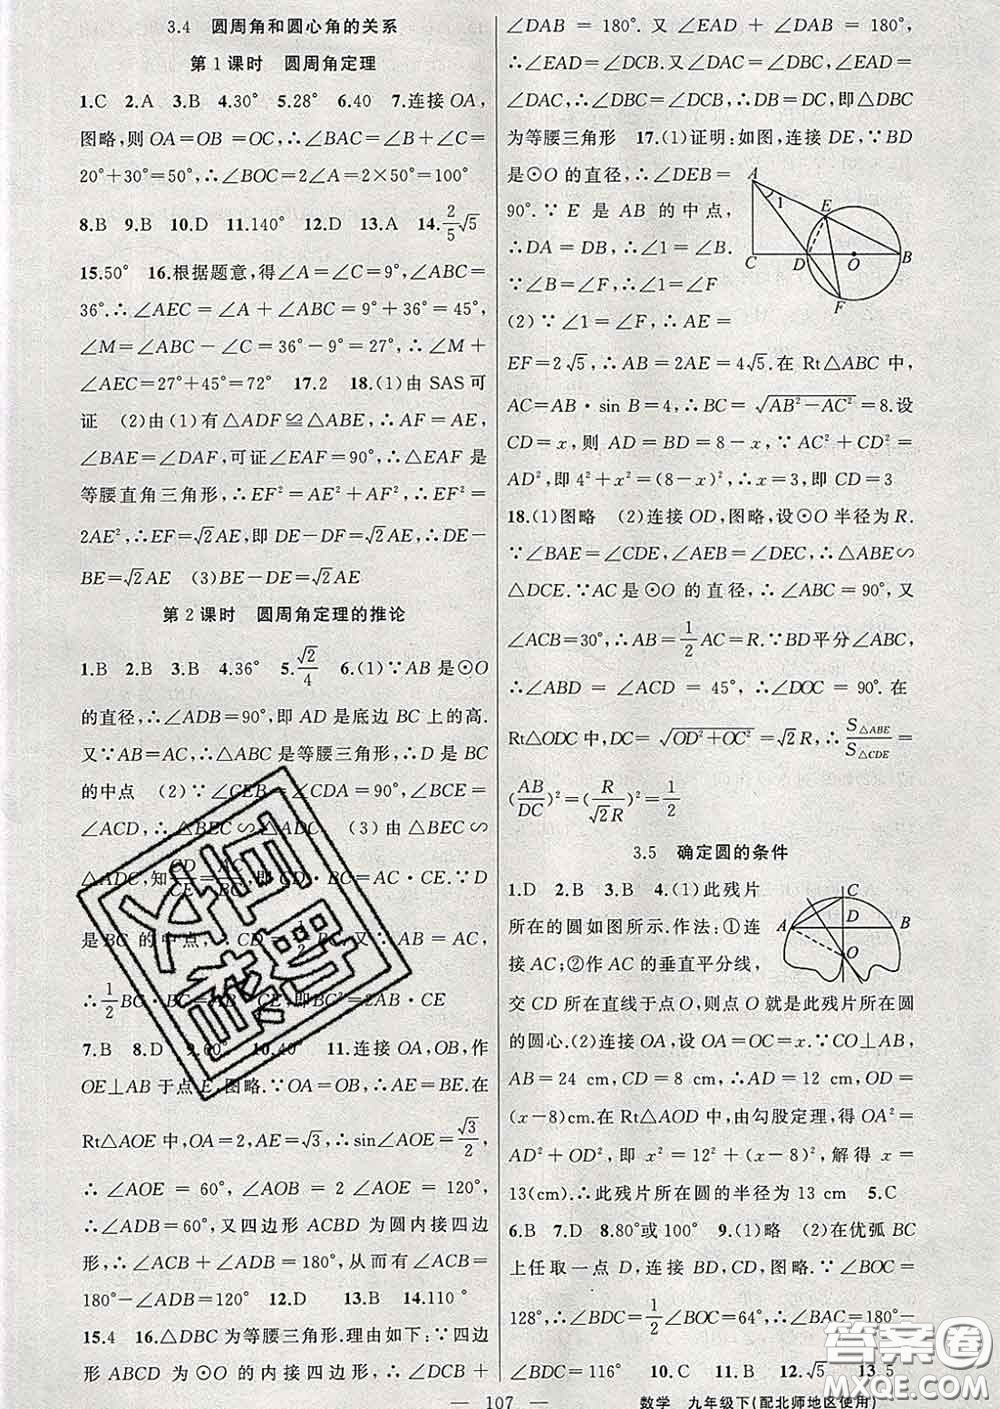 3.4 圆周角和圆心角的关系
第1课时 圆周角定理
1.C 2.A 3.B 4.30° 5.28° 6.40 7.连接OA,
图略,则OA=OB=OC,∴∠BAC=∠B+∠C=
20°+30°=50°,∴∠BOC=2∠A=2×50°=100°
8.B 9.B 10.D 11.140° 12.D 13.A 14.2/5√5
15.50° 16.根据题意,得∠A=∠C=9°,∠ABC=
36°.∴∠AEC=∠A+∠ABC=9°+36°=45°,
∠M=∠ABC-∠C=36°-9°=27°,∴∠M+
∠AEC=27°+45°=72° 17.2 18.(1)由SAS可
证 (2)由(1)有△ADF≌△ABE,∴AF=AE,
∠BAE=∠DAF,可证∠EAF=90°,∴△EAF是
等腰直角三角形,∴EF²=AE²+AF²,∴EF²=
2AE²,∴EF=√2AE,即DE-DF=√2AE,∴DE-
BE=√2AE (3)BE-DE=√2AE
第2课时 圆周角定理的推论
1.B 2.B 3.B 4.36° 5.√2/4 6.(1)∵AB是⊙O
的直径,∴∠ADB=90°,即AD是底边BC上的高.
又∵AB=AC,∴△ABC是等腰三角形,∴D是BC
的中点 (2)∵∠CEB=∠CDA=90°,∠BCE=
∠ACD,∴△BEC∽△ADC (3)由△BEC∽
△ADC,知CD/CE=AC/BC,即CD·BC=AC·CE.∵D
是BC的中点,∴CD=1/2BC.又∵AB=AC,
∴1/2BC·BC=AB·CE,即BC²=2AB·CE
7.B 8.D 9.60° 10.40° 11.连接OA,OB,作
OE⊥AB于点E,图略.∵OA=OB,∴AE=BE.在
Rt△AOE中,OA=2,AE=√3,∴sin∠AOE=√3/2,
∴∠AOE=60°,∠AOB=2∠AOE=120°,
∴∠ADB=60°,又四边形ACBD为圆内接四边
形,∴∠ACB+∠ADB=180°,从而有∠ACB=
180°-∠ADB=120° 12.D 13.B 14.110°
15.4 16.△DBC为等腰三角形.理由如下:∵四边
形ABCD为⊙O的内接四边形,∴∠DCB+
∠DAB=180°.又∵∠EAD+∠DAB=180°,
∴∠EAD=∠DCB.又∵∠EAD=
∠DAC,∴∠DBC=∠DCB,∴DB=DC,即△DBC
为等腰三角形 17.(1)证明:如图,连接DE,∵BD
是⊙O的直径,∴∠DEB=
90°.∵E是AB的中点,
∴DA=DB,∴∠1=∠B.
∵∠B=∠F,∴∠1=∠F
(2)∵∠1=∠F,∴AE=
EF=2√5,∴AB=2AE=4√5.在Rt△ABC中,
AC=AB·sin B=4,∴BC=√(AB²-AC²)=8.设
CD=x,则AD=BD=8-x,∵AC²+CD²=
AD²,即4²+x²=(8-x)²,∴x=3,即CD=3
A
1
E
C
D
O
B
F
18.(1)图略 (2)连接OD,图略,设⊙O半径为R.
∵∠BAE=∠CDE,∠AEB=∠DEC,∴△ABE∽
△DCE.∵AC是⊙O的直径,∴∠ABC=90°,又
∠ACB=30°,∴AB=1/2AC=R.∵BD平分∠ABC,
∴∠ABD=∠ACD=45°,∴∠DOC=90°.在
Rt△ODC中,DC=√(OD²+OC²)=√2R,∴S△ABE/S△CDE=
(AB/DC)²=(R/√2R)²=1/2
3.5 确定圆的条件
1.D 2.B 3.B 4.(1)此残片
所在的圆如图所示.作法:①连
接AC;②作AC的垂直平分线,
交CD所在直线于点O,则点O就是此残片所在圆
的圆心.(2)连接OA,设OA=OC=x.∵CO⊥AB,
AB=24 cm,CD=8 cm,∴AD=12 cm,OD=
(x-8)cm.在Rt△AOD中,由勾股定理,得OA²=
AD²+OD²,即x²=12²+(x-8)²,解得x=
13(cm).∴此残片所在圆的半径为13 cm 5.C
C
D
A
B
O
6.B 7.D 8.80°或100° 9.(1)略 (2)在优弧BC
上任取一点D,连接BD,CD,图略.∵∠BOC=
128°,∴∠BDC=1/2∠BOC=64°,∴∠BAC=180°-
∠BDC=116° 10.C 11.B 12.√5 13.5
— 107 —
数学 九年级下(配北师地区使用)
答案圈
MXQE.COM